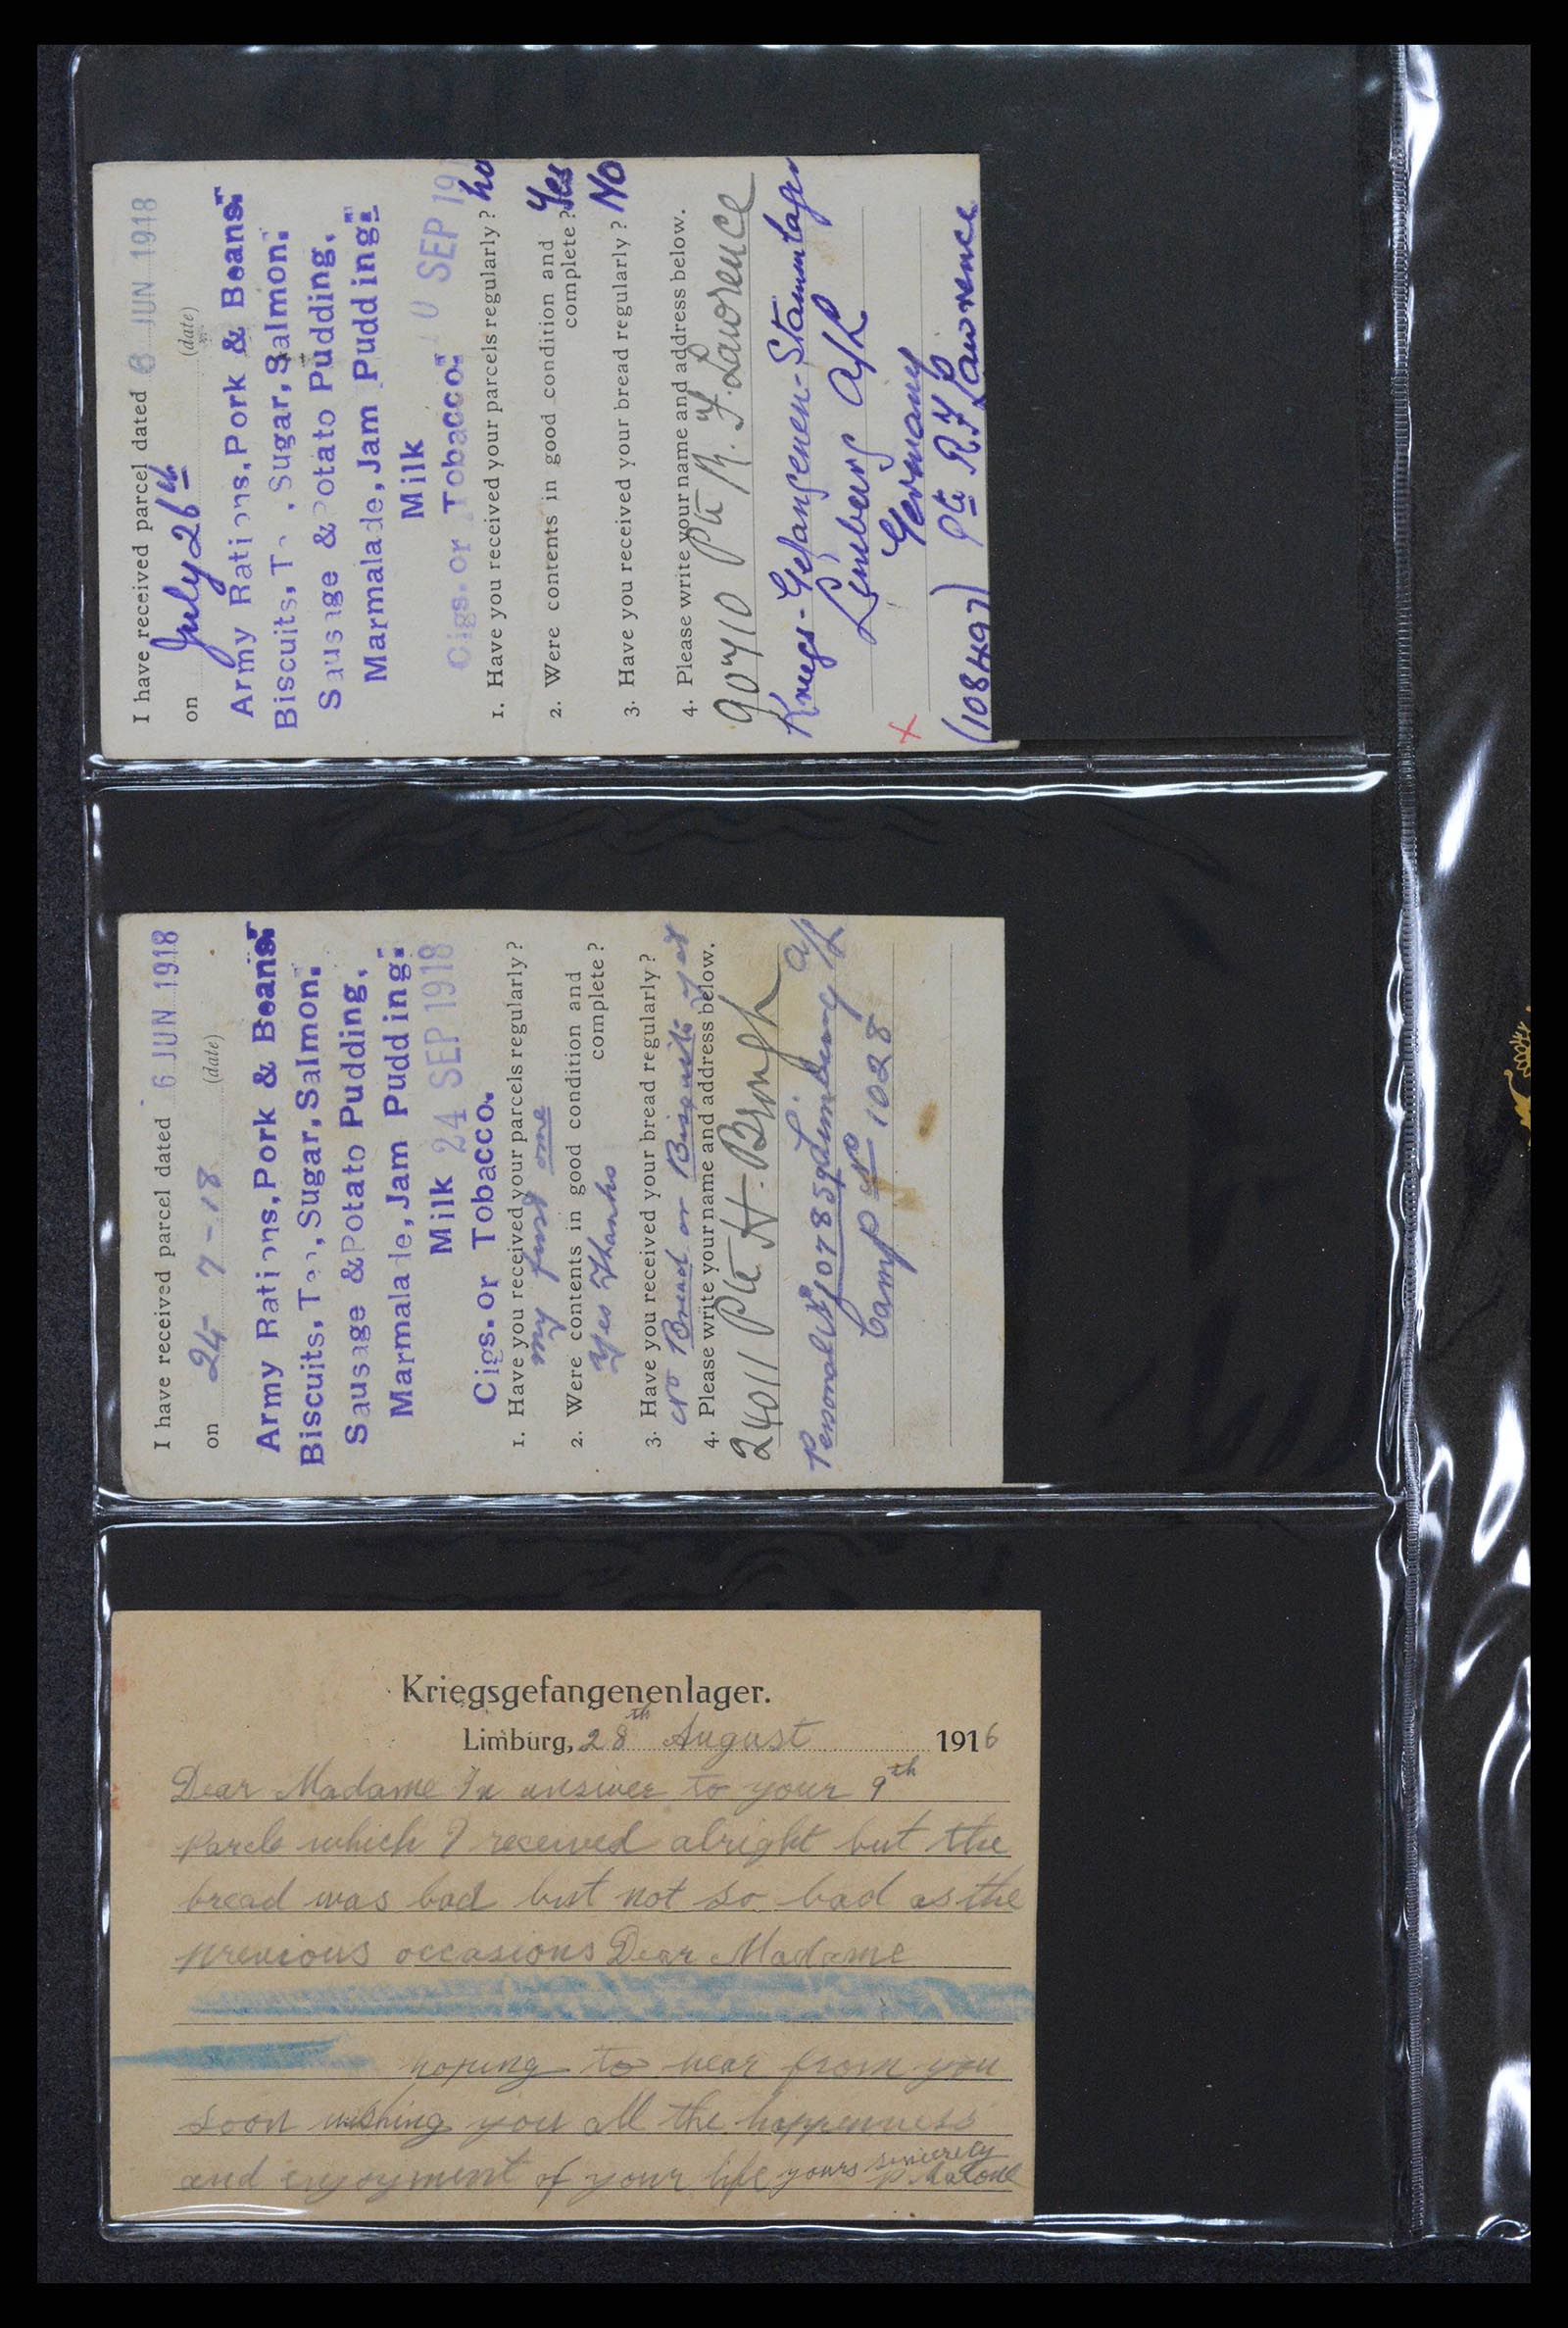 I have received parcel dated 6 JUN 1918
on July 26th (date)
Army Rations, Pork & Beans.
Biscuits, T , Sugar, Salmon.
Sausage & Potato Pudding,
Marmalade, Jam Pudding.
Milk
Cigs. or Tobacco. 0 SEP 19
1. Have you received your parcels regularly? no
2. Were contents in good condition and
complete? Yes
3. Have you received your bread regularly? No
4. Please write your name and address below.
90710 Pte R. F. Lawrence
Kriegs-Gefangenen-Stammlager
Limburg a/L
Germany
X
(108497) Pte R. F. Lawrence
I have received parcel dated 6 JUN 1918
on 24-7-18 (date)
Army Rations, Pork & Beans.
Biscuits, Tea, Sugar, Salmon.
Sausage & Potato Pudding,
Marmalade, Jam Pudding.
Milk 24 SEP 1918
Cigs. or Tobacco.
1. Have you received your parcels regularly?
my first one
2. Were contents in good condition and
complete?
Yes Thanks
3. Have you received your bread regularly?
No Bread or Bisquits yet
4. Please write your name and address below.
24011 Pte H. Brough
Personal No 107859 Limburg a/L
Camp No 1028
Kriegsgefangenenlager.
Limburg, 28th August 1916
Dear Madame In answer to your 9th
Parcle which I received alright but the
bread was bad but not so bad as the
previous occasions Dear Madame
hoping to hear from you
soon wishing you all the happenness
and enjoyment of your life yours sincerely
P. Malone